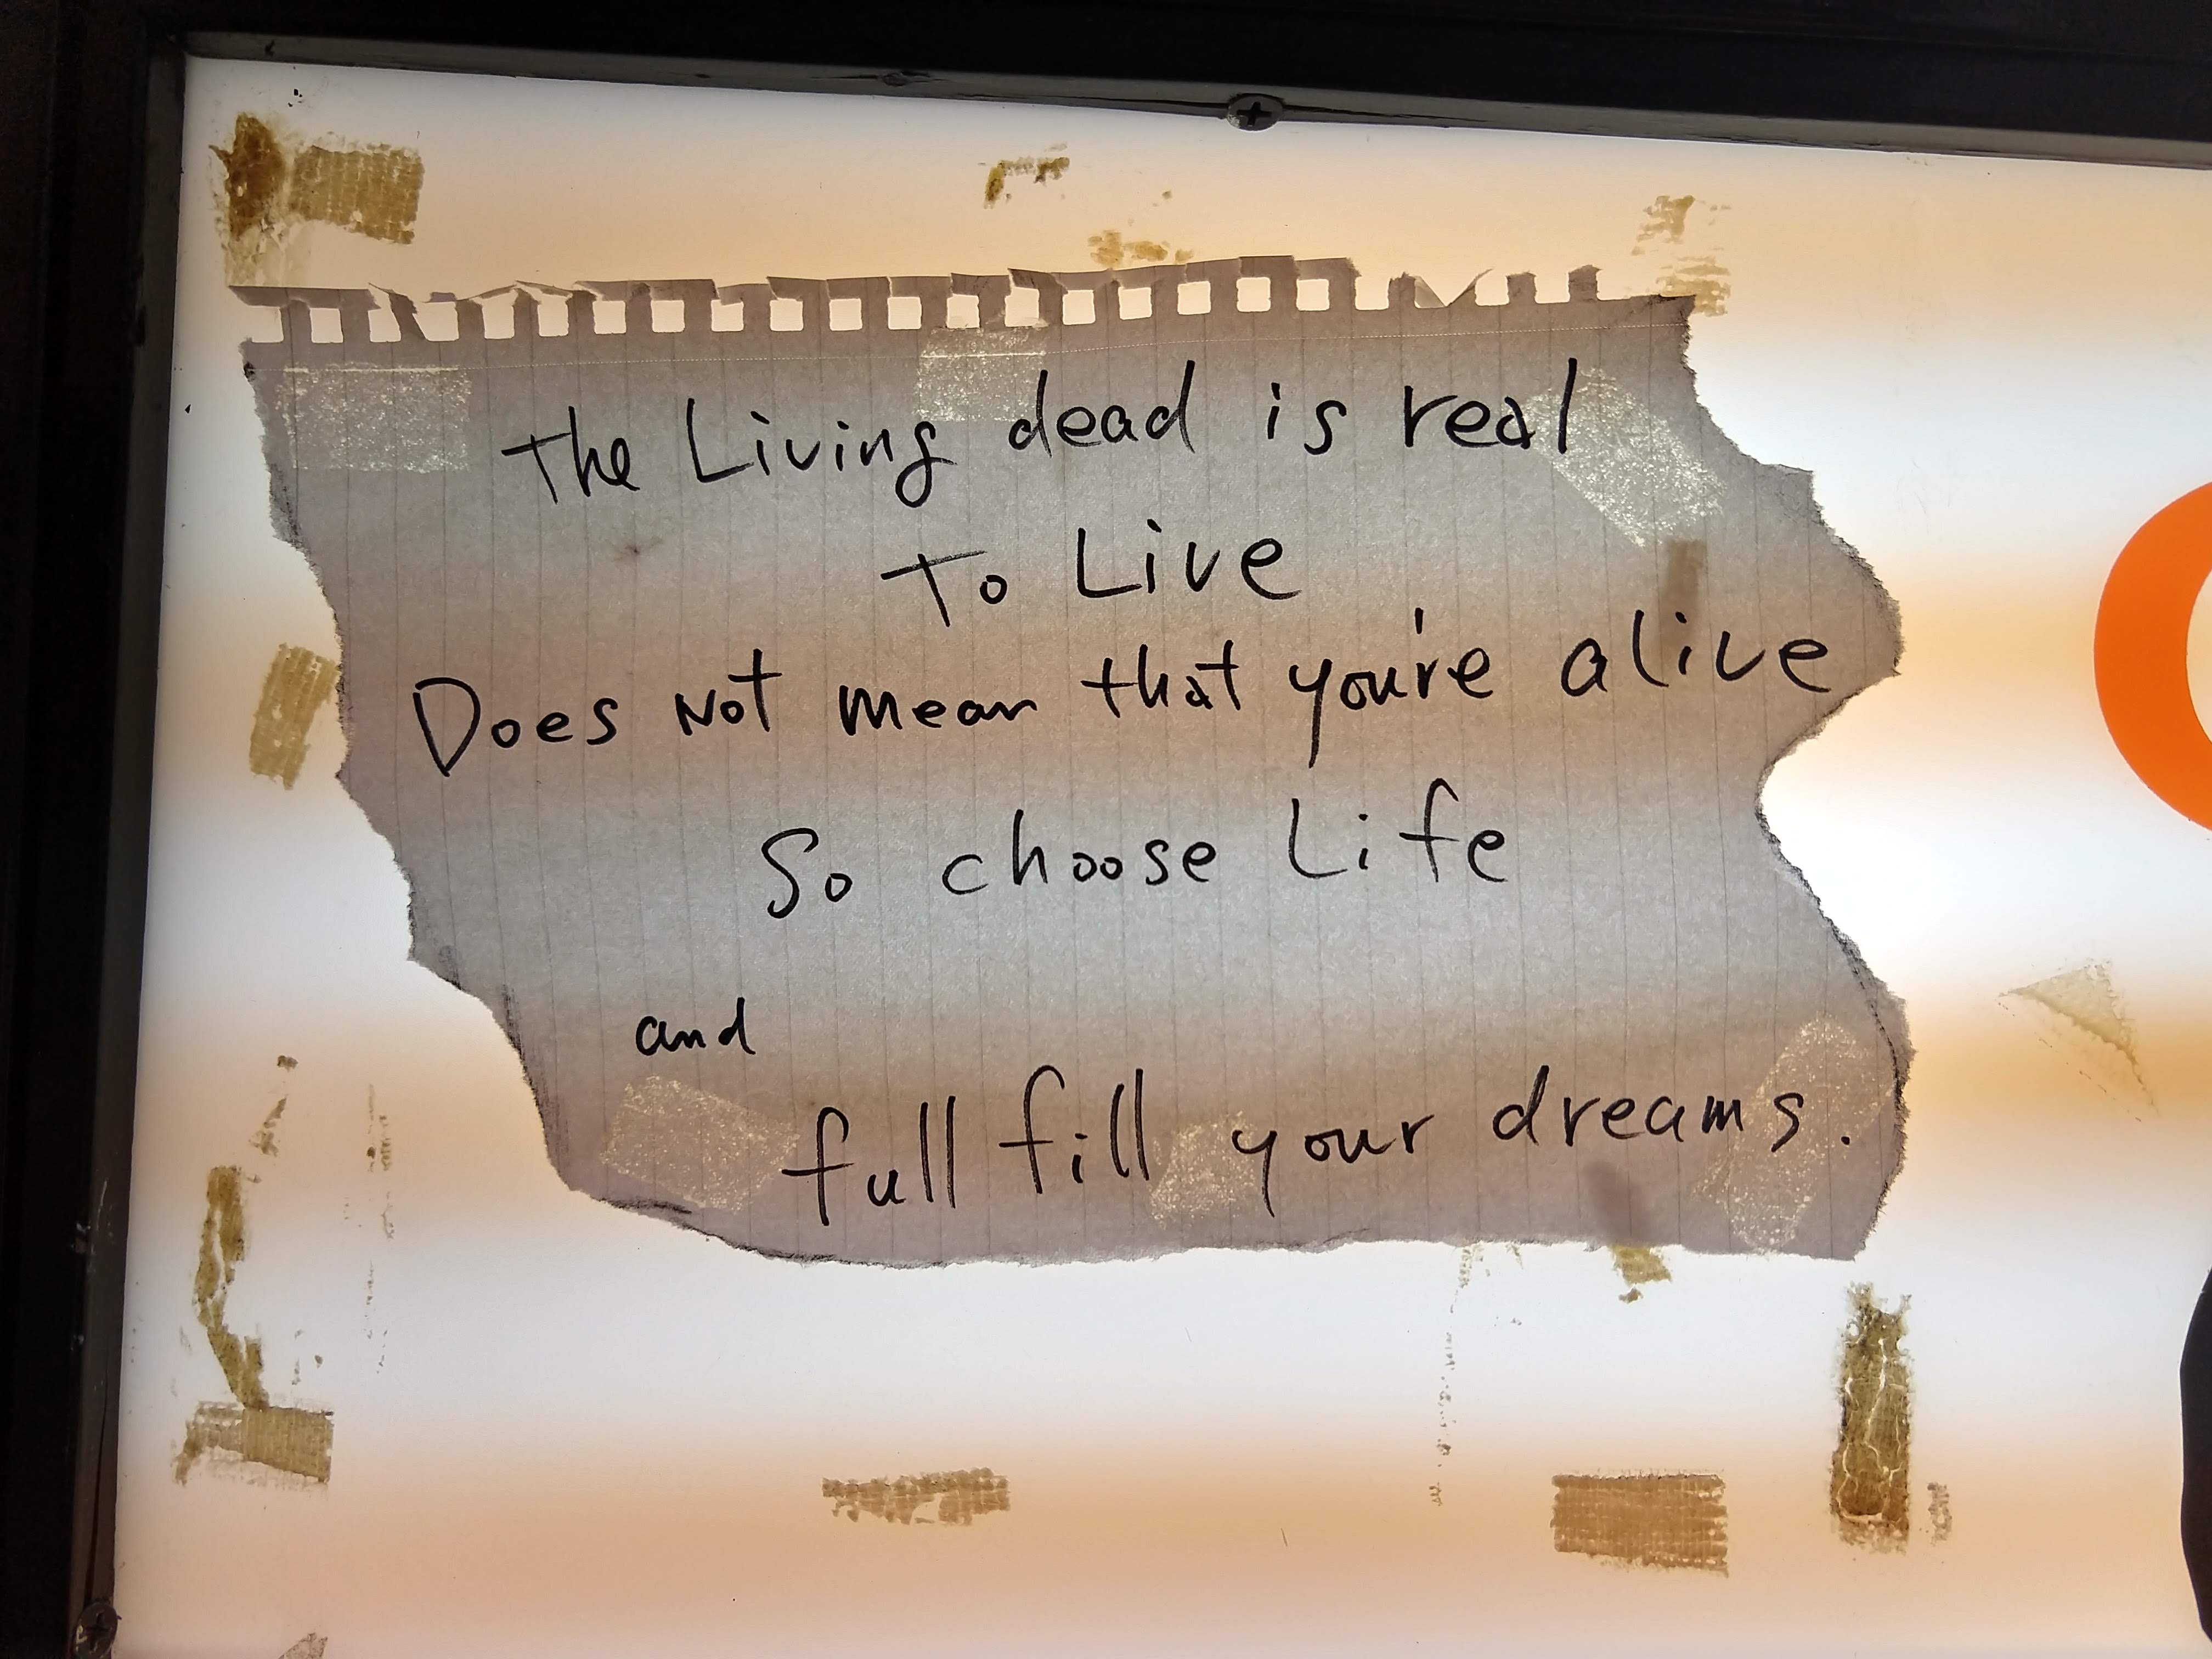 The Living dead is real
To Live
Does Not mean that you're alive
So choose Life
and
full fill your dreams.